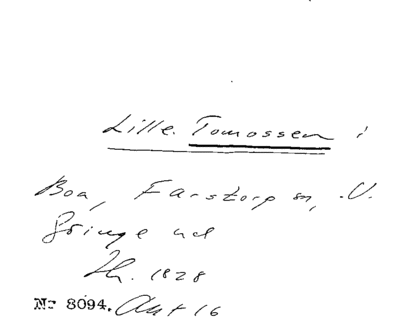 Lille Tomossen i
Boa, Farstorp sn, V.
Göinge hd
Th. 1828
Nr 8094. Akt 16